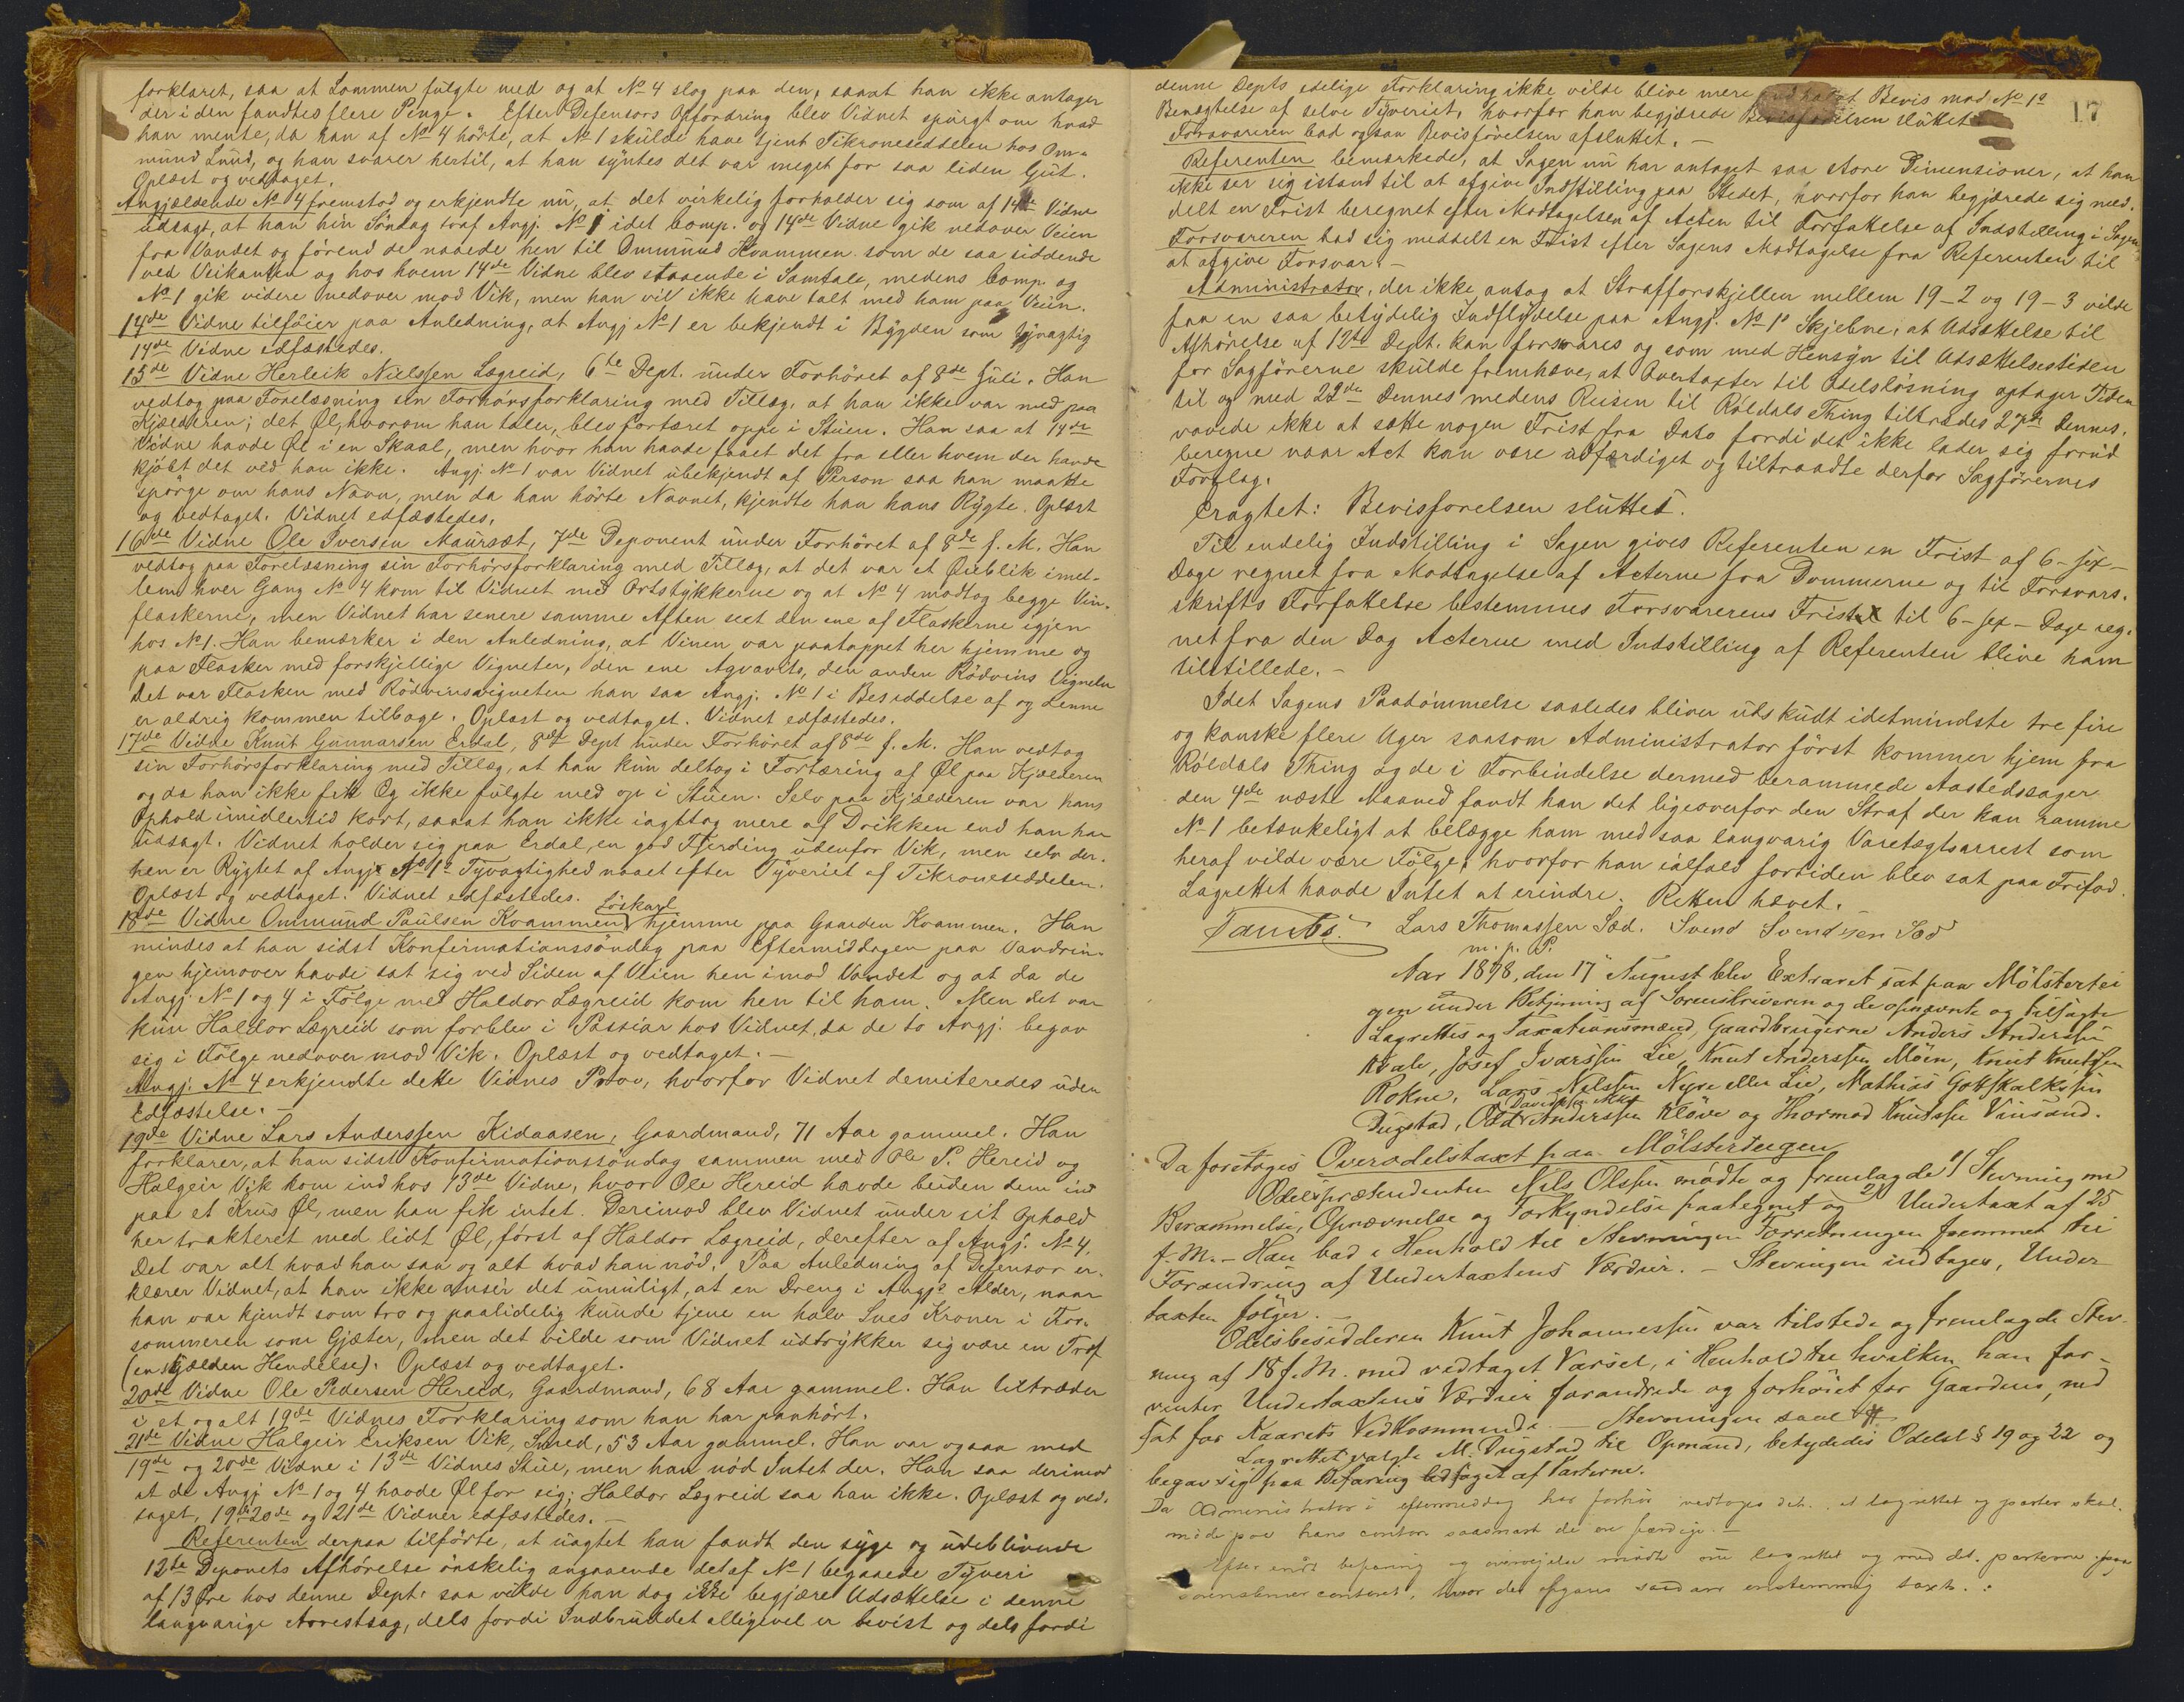 forklaret, saa at Lommen fulgte med og at No 4 slog paa den, saaat han ikke antager
der i den fandtes flere Penge. Efter Defensors Opfordring blev Vidnet spurgt om hvad
han mente, da han af No 4 hörte, at No 1 skulde have tjent Tikronesedelen hos Om-
mund Lund, og han svarer hertil, at han syntes det var meget for saa liden Gut.
Oplæst og vedtaget.
Angjældende No 4 fremstod og erkjendte nu, at det virkelig forholder sig som af 14de Vidne
udsagt, at han hin Söndag traf Angj. No 1 idet Comp. og 14de Vidne gik nedover Veien
fra Vandet og förend de naaede hen til Ommund Kvammen som de saa siddende
ved Veikanten og hos hvem 14de Vidne blev staaende i Samtale, medens Comp. og
No 1 gik videre nedover mod Vik, men han vil ikke have talt med ham paa Veien.
14de Vidne tilföier paa Anledning, at Angj No 1 er bekjendt i Bygden som tyvagtig
14de Vidne edfæstedes.
15de Vidne Herleik Nielssen Lægreid, 6te Dept. under Forhöret af 8de Juli. Han
vedtog paa Forelæsning sin Forhörsforklaring med Tillæg, at han ikke var med paa
Kjælderen; det Øl, hvorom han taler, blev fortæret oppe i Stuen. Han saa at 14de
Vidne havde Øl i en Skaal, men hvor han havde faaet det fra eller hvem der havde
kjöbt det ved han ikke. Angj No 1 var Vidnet ubekjendt af Person saa han maatte
spörge om hans Navn, men da han hörte Navnet, kjendte han hans Rygte. Oplæst
og vedtaget. Vidnet edfæstedes.
16de Vidne Ole Iversen Maursæt, 7de Deponent under Forhöret af 8de f. M. Han
vedtog paa Forelæsning sin Forhörsforklaring med Tillæg, at det var et Øieblik imel-
lem hver Gang No 4 kom til Vidnet med Ortstykkerne og at No 4 modtog begge Vin-
flaskerne, men Vidnet har senere samme Aften seet den ene af Flaskerne igjen
hos No 1. Han bemærker i den Anledning, at Vinen var paatappet her hjemme og
paa Flasker med forskjellige Vigneter, den ene Aqvavits, den anden Rödvins Vignetn
det var Flasken med Rödvinsvigneten han saa Angj. No 1 i Besiddelse af og denne
er aldrig kommen tilbage. Oplæst og vedtaget. Vidnet edfæstedes.
17de Vidne Knut Gunnarsen Erdal, 8de Dept under Forhöret af 8de f. M. Han vedtog
sin Forhörsforklaring med Tillæg, at han kun deltog i Fortæring af Øl paa Kjælderen
og da han ikke fik Og ikke fulgte med op i Stuen. Selv paa Kjælderen var hans
Ophold imidlertid kort, saaat han ikke iagttog mere af Drikken end han har
udsagt. Vidnet holder sig paa Erdal, en god Fjerding udenfor Vik, men selv der-
hen er Rygtet af Angj No 1s Tyvagtighed naaet efter Tyveriet af Tikroneseddelen.
Oplæst og vedtaget. Vidnet edfæstedes. Löskarl
18de Vidne Ommund Paulsen Kvammen, hjemme paa Gaarden Kvammen. Han
mindes at han sidst Konfirmationssöndag paa Eftermiddagen paa Vandrin-
gen hjemover havde sat sig ved Siden af Veien hen imod Vandet og at da de
Angj. No 1 og 4 i Fölge med Haldor Lægreid kom hen til ham. Men det var
kun Haldor Lægreid som forblev i Passiar hos Vidnet, da de to Angj. begav
sig i Fölge nedover mod Vik. Oplæst og vedtaget. —
Angj. No 4 erkjendte dette Vidnes Prov, hvorfor Vidnet demiteredes uden
Edfæstelse. —
19de Vidne Lars Anderssen Kidaasen, Gaardmand, 71 Aar gammel. Han
forklarer, at han sidst Konfirmationssöndag sammen med Ole P. Hereid og
Halgeir Vik kom ind hos 13de Vidne, hvor Ole Hereid havde beden dem ind
paa et Krus Øl, men han fik intet. Derimod blev Vidnet under sit Ophold
her trakteret med lidt Øl, först af Haldor Lægreid, derefter af Angj. No 4.
Det var alt hvad han saa og alt hvad han nöd. Paa Anledning af Defensor er-
klærer Vidnet, at han ikke anser det umuligt, at en Dreng i Angjs Alder, naar
han var kjendt som tro og paalidelig kunde tjene en halv Snes Kroner i For-
sommeren som Gjæter, men det vilde som Vidnet udtrykker sig være en Traf
(en sjælden Hendelse). Oplæst og vedtaget.
20de Vidne Ole Pedersen Hereid, Gaardmand, 68 Aar gammel. Han tiltræder
i et og alt 19de Vidnes Forklaring som han har paahört.
21de Vidne Halgeir Eriksen Vik, Smed, 53 Aar gammel. Han var ogsaa med
19de og 20de Vidne i 13de Vidnes Stue, men han nöd Intet der. Han saa derimod
at de Angj No 1 og 4 havde Øl for sig; Haldor Lægreid saa han ikke. Oplæst og ved-
taget, 19de 20de og 21de Vidner edfæstedes. —
Referenten derpaa tilförte, at uagtet han fandt den syge og udeblivende
12te Deponets Afhörelse önskelig angaaende det af No 1 begaaede Tyveri
af 13 Øre hos denne Dept. saa vilde han dog ikke begjære Udsættelse i denne
langvarige Arrestsag, dels fordi Indbruddet alligevel er bevist og dels fordi
17
denne Depts edelige Forklaring ikke vilde blive mere Bevis mod No 1s
Benægtelse af selve Tyveriet, hvorfor han begjærede Bevisförelsen sluttet
Forsvareren bad ogsaa Bevisförelsen afsluttet. —
Referenten bemærkede, at Sagen nu har antaget saa store Dimensioner, at han
ikke ser sig istand til at afgive Indstilling paa Stedet, hvorfor han begjærede sig med-
delt en Frist beregnet efter Modtagelsen af Acten til Forfattelse af Indstilling i Sagen
Forsvareren bad sig meddelt en Frist efter Sagens Modtagelse fra Referenten til
at afgive Forsvar. —
Administrator, der ikke antog at Strafforskjellen mellem 19–2 og 19–3 vilde
faa en saa betydelig Indflydelse paa Angj. No 1s Skjebne, at Udsættelse til
Afhörelse af 12te Dept. kan forsvares og som med Hensyn til Udsættelsestiden
for Sagförerne skulde fremhæve, at Overtaxter til Odelslösning optager Tiden
til og med 22de Dennes medens Reisen til Röldals Thing tiltrædes 27de Dennes,
vovede ikke at sætte nogen Frist fra Dato fordi det ikke lader sig forud
beregne naar Act kan være udfærdiget og tiltraadte derfor Sagförernes
Forslag.
Eragtet: Bevisförelsen sluttet.
Til endelig Indstilling i Sagen gives Referenten en Frist af 6 – sex –
Dage regnet fra Modtagelse af Acterne fra Dommerne og til Forsvars-
skrifts Forfattelse bestemmes Forsvarerens Frist til 6 – sex – Dage reg-
net fra den Dag Acterne med Indstilling af Referenten blive ham
tilstillede. —
Idet Sagens Paadömmelse saaledes bliver udskudt idetmindste tre fire
og kanske flere Uger saasom Administrator först kommer hjem fra
Röldals Thing og de i Forbindelse dermed berammede Aastedssager
den 4de næste Maaned fandt han det ligeoverfor den Straf der kan ramme
No 1 betænkeligt at belægge ham med saa langvarig Varetægtsarrest som
heraf vilde være Fölge, hvorfor han ialfald fortiden blev sat paa Frifod.
Lagrettet havde Intet at erindre. Retten hævet.
Lars Thomassen Sæd. Svend Svendsen Sæd
m. p. P.
Aar 1898, den 17 August blev Extraret sat paa Mölstertei
gen under Betjening af Sorenskriveren og de opnævnte og tilsagte
Lagrettes og Taxationsmænd, Gaardbrugerne Anders Anderssen
Kvale, Josef Ivarssen Lie, Knut Anderssen Möen, Knut Knutssen
Rokne, Lars Nilssen Nyre eller Lie, Mathias Gottskalkssen
Dugstad, Odd Anderssen Klöve og Thormod Knutssen Vinsand.
Da foretoges Overodelstaxt paa Mölsterteigen
Odelsprætendenten Nils Olssen mödte og fremlagde 1/ Stevning med
Berammelse, Opnævnelse og Forkyndelse paategnet og 2/ Undertaxt af 25
f. M. — Han bad i Henhold til Stevningen Forretningen fremmet til
Forandring af Undertaxtens Værdier. — Stevningen indtages, Under-
taxten fölger. —
Odelsbesidderen Knut Johannessen var tilstede og fremlagde Stev-
ning af 18 f. M. med vedtaget Varsel, i Henhold til hvilken han for-
venter Undertaxtens Værdier forandrede og forhöiet for Gaarden, ned
sat for Kaarets Vedkommende. — Stevningen
Lagrettet valgte M. Dugstad til Opmand, betydedes Odelsl § 19 og 22 og
begav sig paa Befaring ledsaget af Parterne.
Da Administrator i eftermiddag har forhör vedtoges det, at lagrettet og parter skal
möde paa hans contor saasnart de er færdige. —
Efter endt befaring og overveielse mödte nu lagrettet og med det parterne paa
contoret, hvor der afgaves saadan enstemmig taxt: